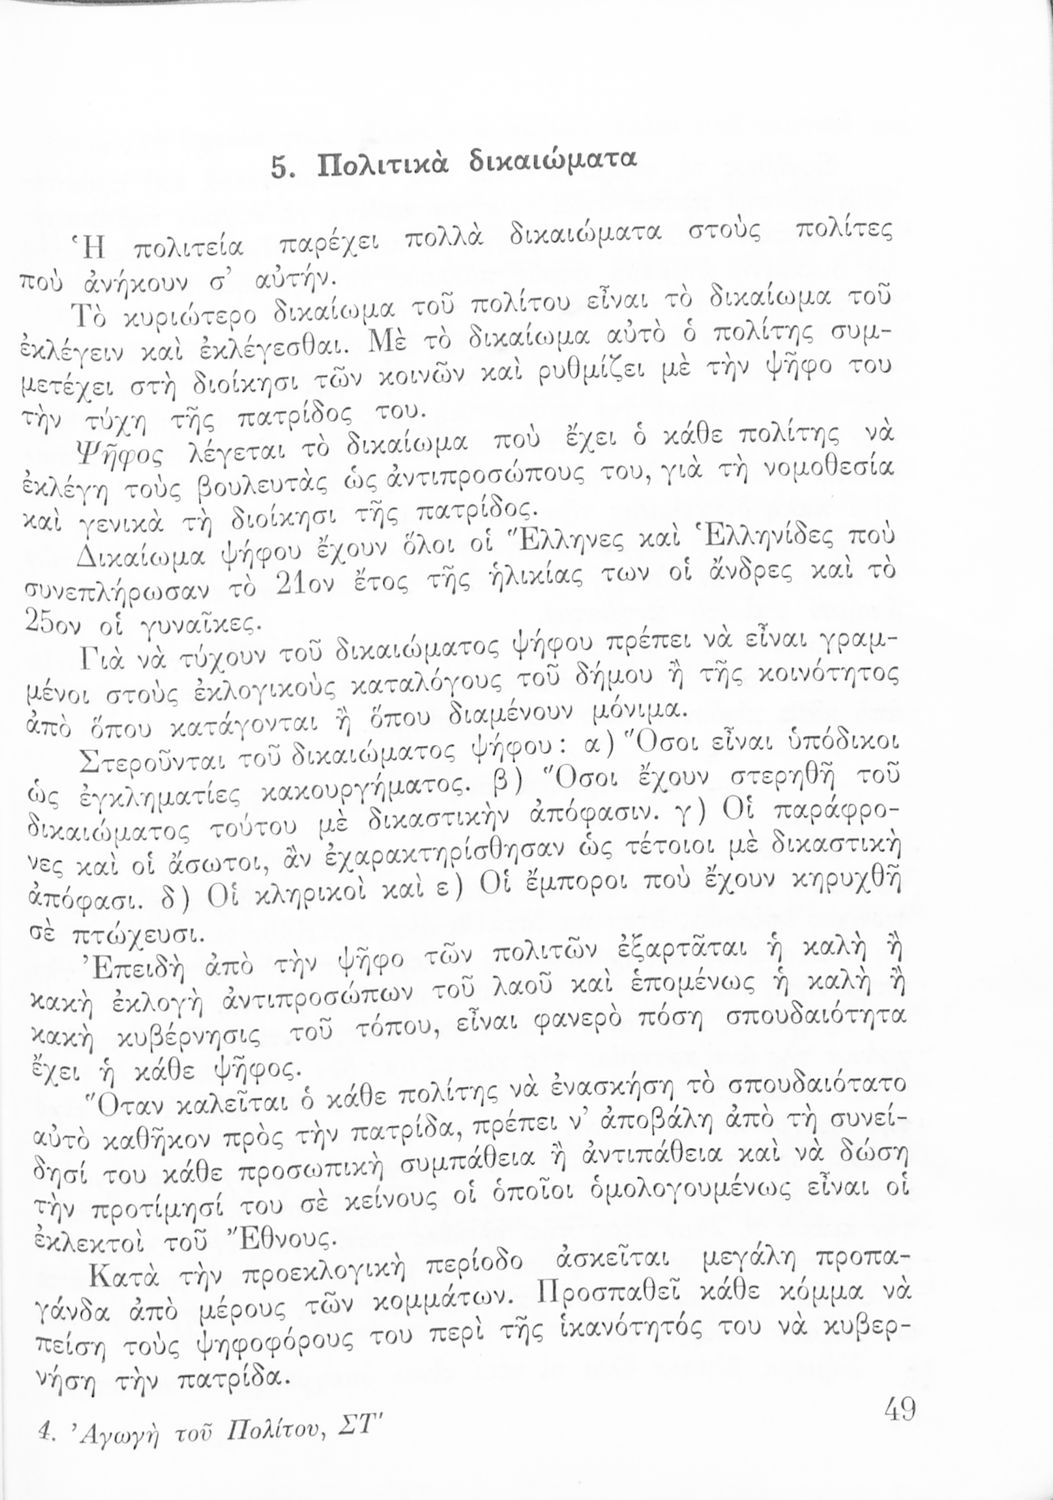 5. Πολιτικὰ δικαιώματα
Ἡ πολιτεία παρέχει πολλὰ δικαιώματα στοὺς πολίτες
ποὺ ἀνήκουν σ’ αὐτήν.
Τὸ κυριώτερο δικαίωμα τοῦ πολίτου εἶναι τὸ δικαίωμα τοῦ
ἐκλέγειν καὶ ἐκλέγεσθαι. Μὲ τὸ δικαίωμα αὐτὸ ὁ πολίτης συμ-
μετέχει στὴ διοίκησι τῶν κοινῶν καὶ ρυθμίζει μὲ τὴν ψῆφο του
τὴν τύχη τῆς πατρίδος του.
Ψῆφος λέγεται τὸ δικαίωμα ποὺ ἔχει ὁ κάθε πολίτης νὰ
ἐκλέγη τοὺς βουλευτὰς ὡς ἀντιπροσώπους του, γιὰ τὴ νομοθεσία
καὶ γενικὰ τὴ διοίκησι τῆς πατρίδος.
Δικαίωμα ψήφου ἔχουν ὅλοι οἱ Ἕλληνες καὶ Ἑλληνίδες ποὺ
συνεπλήρωσαν τὸ 21ον ἔτος τῆς ἡλικίας των οἱ ἄνδρες καὶ τὸ
25ον οἱ γυναῖκες.
Γιὰ νὰ τύχουν τοῦ δικαιώματος ψήφου πρέπει νὰ εἶναι γραμ-
μένοι στοὺς ἐκλογικοὺς καταλόγους τοῦ δήμου ἢ τῆς κοινότητος
ἀπὸ ὅπου κατάγονται ἢ ὅπου διαμένουν μόνιμα.
Στεροῦνται τοῦ δικαιώματος ψήφου: α) Ὅσοι εἶναι ὑπόδικοι
ὡς ἐγκληματίες κακουργήματος. β) Ὅσοι ἔχουν στερηθῆ τοῦ
δικαιώματος τούτου μὲ δικαστικὴν ἀπόφασιν. γ) Οἱ παράφρο-
νες καὶ οἱ ἄσωτοι, ἂν ἐχαρακτηρίσθησαν ὡς τέτοιοι μὲ δικαστικὴ
ἀπόφασι. δ) Οἱ κληρικοὶ καὶ ε) Οἱ ἔμποροι ποὺ ἔχουν κηρυχθῆ
σὲ πτώχευσι.
Ἐπειδὴ ἀπὸ τὴν ψῆφο τῶν πολιτῶν ἐξαρτᾶται ἡ καλὴ ἢ
κακὴ ἐκλογὴ ἀντιπροσώπων τοῦ λαοῦ καὶ ἑπομένως ἡ καλὴ ἢ
κακὴ κυβέρνησις τοῦ τόπου, εἶναι φανερὸ πόση σπουδαιότητα
ἔχει ἡ κάθε ψῆφος.
Ὅταν καλεῖται ὁ κάθε πολίτης νὰ ἐνασκήση τὸ σπουδαιότατο
αὐτὸ καθῆκον πρὸς τὴν πατρίδα, πρέπει ν’ ἀποβάλη ἀπὸ τὴ συνεί-
δησί του κάθε προσωπικὴ συμπάθεια ἢ ἀντιπάθεια καὶ νὰ δώση
τὴν προτίμησί του σὲ κείνους οἱ ὁποῖοι ὁμολογουμένως εἶναι οἱ
ἐκλεκτοὶ τοῦ Ἔθνους.
Κατὰ τὴν προεκλογικὴ περίοδο ἀσκεῖται μεγάλη προπα-
γάνδα ἀπὸ μέρους τῶν κομμάτων. Προσπαθεῖ κάθε κόμμα νὰ
πείση τοὺς ψηφοφόρους του περὶ τῆς ἱκανότητός του νὰ κυβερ-
νήση τὴν πατρίδα.
4. Ἀγωγὴ τοῦ Πολίτου, ΣΤ′
49